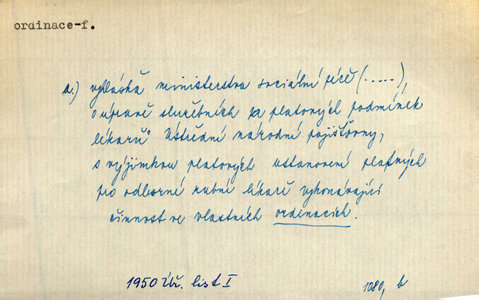 ordinace-f.
a.) vyhláška ministerstva sociální péče (.....),
o úpravě služebních a platových podmínek
lékařů Ústřední národní pojišťovny,
s výjimkou platových ustanovení platných
pro odborné zubní lékaře vykonávající
činnost ve vlastních ordinacích.
1950 Úř. list I
1080, b